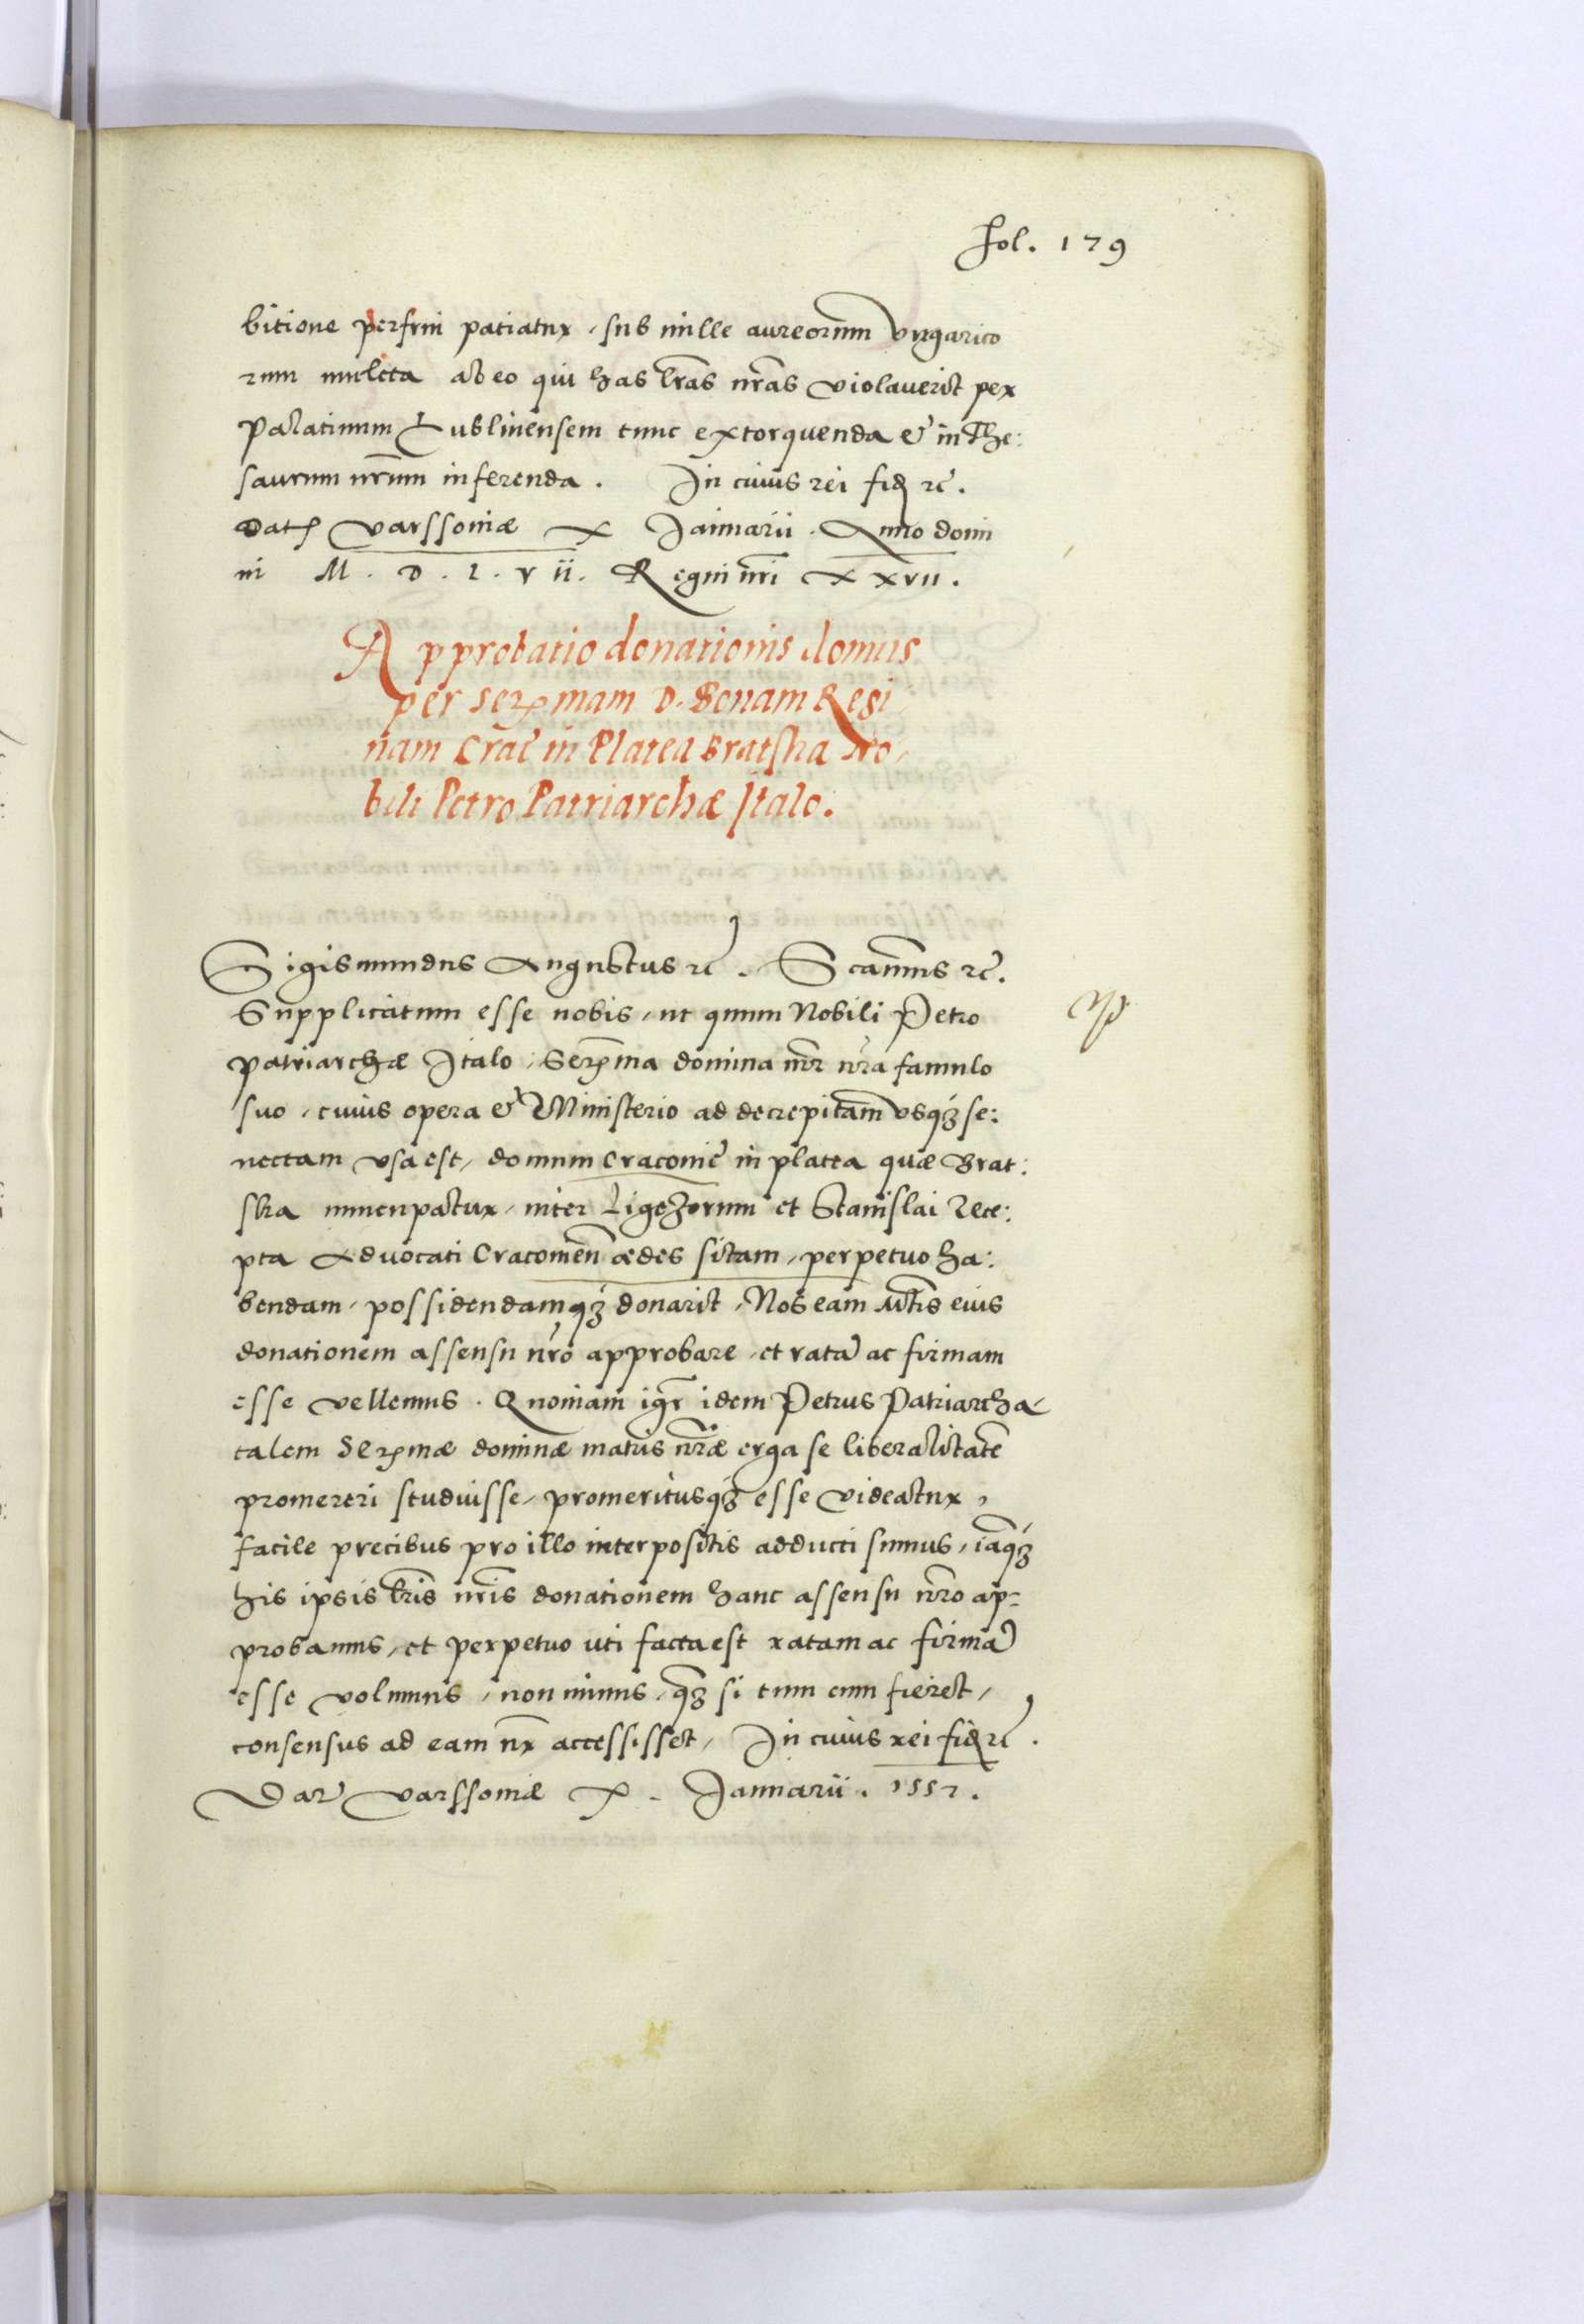 fol. 179
bitione perfrui patiatur, sub mille aureorum Vngarico
rum mulcta ab eo qui has lrãs nrãs violauerit per
Palatinum Lublinensem tunc extorquenda et in The:
saurum nrũm inferenda. In cuius rei fid rc̃.
Dat varssoniæ X Januarii. Anno domi
ni M. D. L. VII. Regni nrĩ XXVII.
Approbatio donationis domus
per Sermam D. Bonam Regi
nam Crac̃ in Platea Bratska No,
bili Petro Patriarchæ Italo.
Sigismundus Augustus rc̃. Scamus rc̃.
Supplicatum esse nobis, ut quum Nobili Petro
patriarchæ Italo, Serma domina mr̃ nrã famulo
suo, cuius opera et Ministerio ad decrepitam vsq se:
nectam vsa est, domum Cracouiẽ in platea quæ Brat:
ska nuncupatur, inter Ligezorum et Stanislai Rece:
pta Aduocati Cracouien̄ ædes sitam, perpetuo ha:
bendam, possidendamq donarit, Nos eam Mtĩs eius
donationem assensu nrõ approbare, et ratã ac firmam
esse vellemus. Quoniam igr̃ idem Petrus Patriarcha
talem Sermæ dominæ matris nræ̃ erga se liberalitatẽ
promereri studuisse, promeritusq esse videatur,
facile precibus pro illo interpositis adducti sumus, iãq
his ipsis lrĩs nrĩs donationem hanc assensu nrõ ap-
probamus, et perpetuo uti facta est ratam ac firmã
esse volumus, non minus, q̃ si tum cum fieret,
consensus ad eam nr̃ accessisset, In cuius rei fid rc̃.
Dat varssoniæ X. Januarii. 1557.